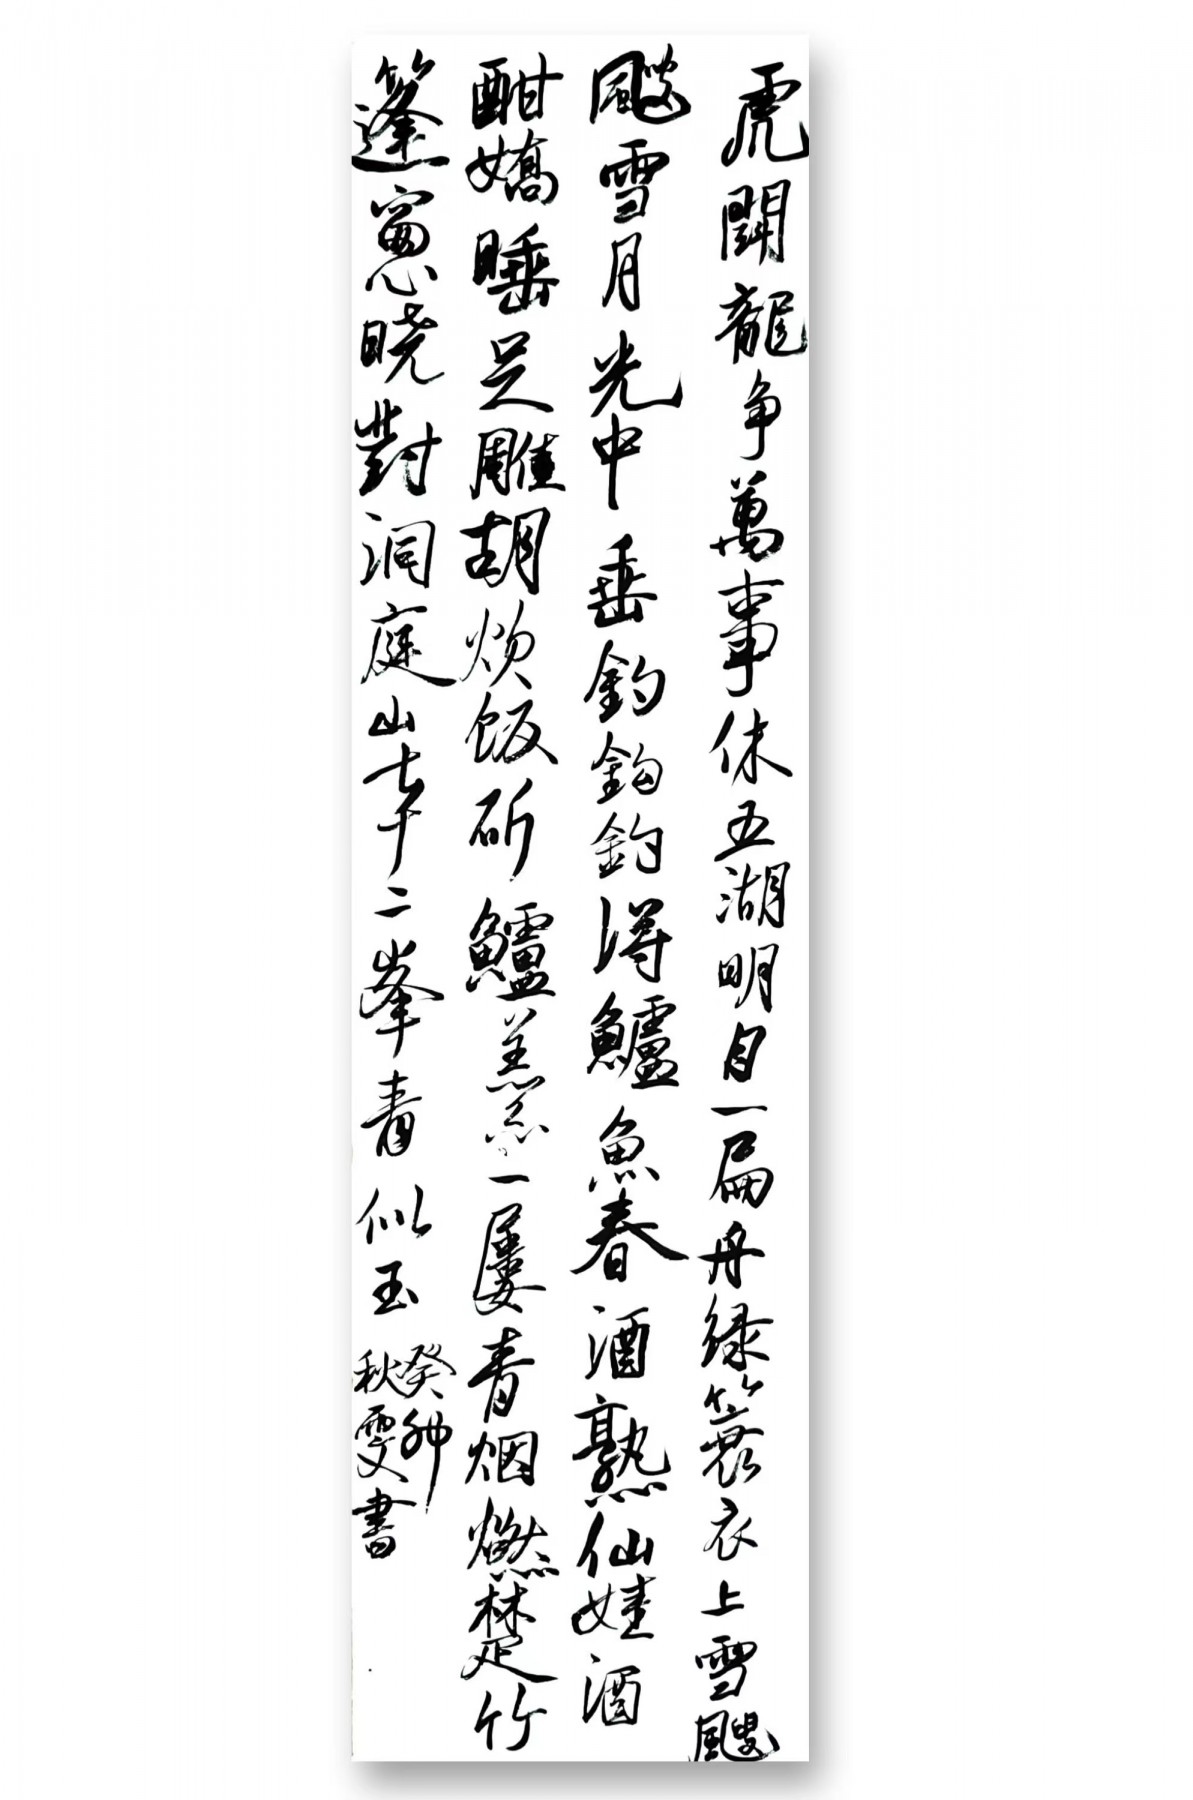 虎鬪龍争萬事休五湖明月一扁舟緑簑衣上雪颼
颼雪月光中垂釣鈎釣得鱸魚春酒熟仙娃酒
酣嬌睡足雕胡炊飯斫鱸羹一屢青烟燃楚竹
篷窻晓對洞庭山七十二峯青似玉
癸卯
秋雯書